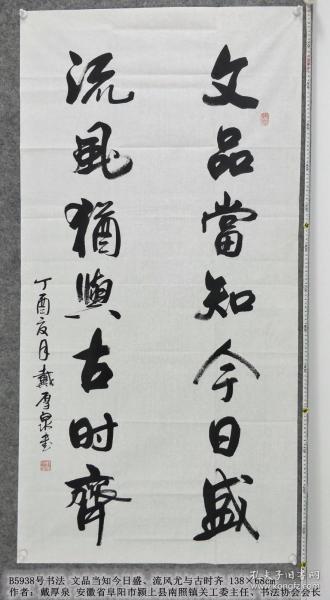 文品當知今日盛
流風猶與古时齊
丁酉夏月戴厚泉書
B5938号书法 文品当知今日盛、流风尤与古时齐 138×68cm
作者：戴厚泉 安徽省阜阳市颍上县南照镇关工委主任、书法协会会长